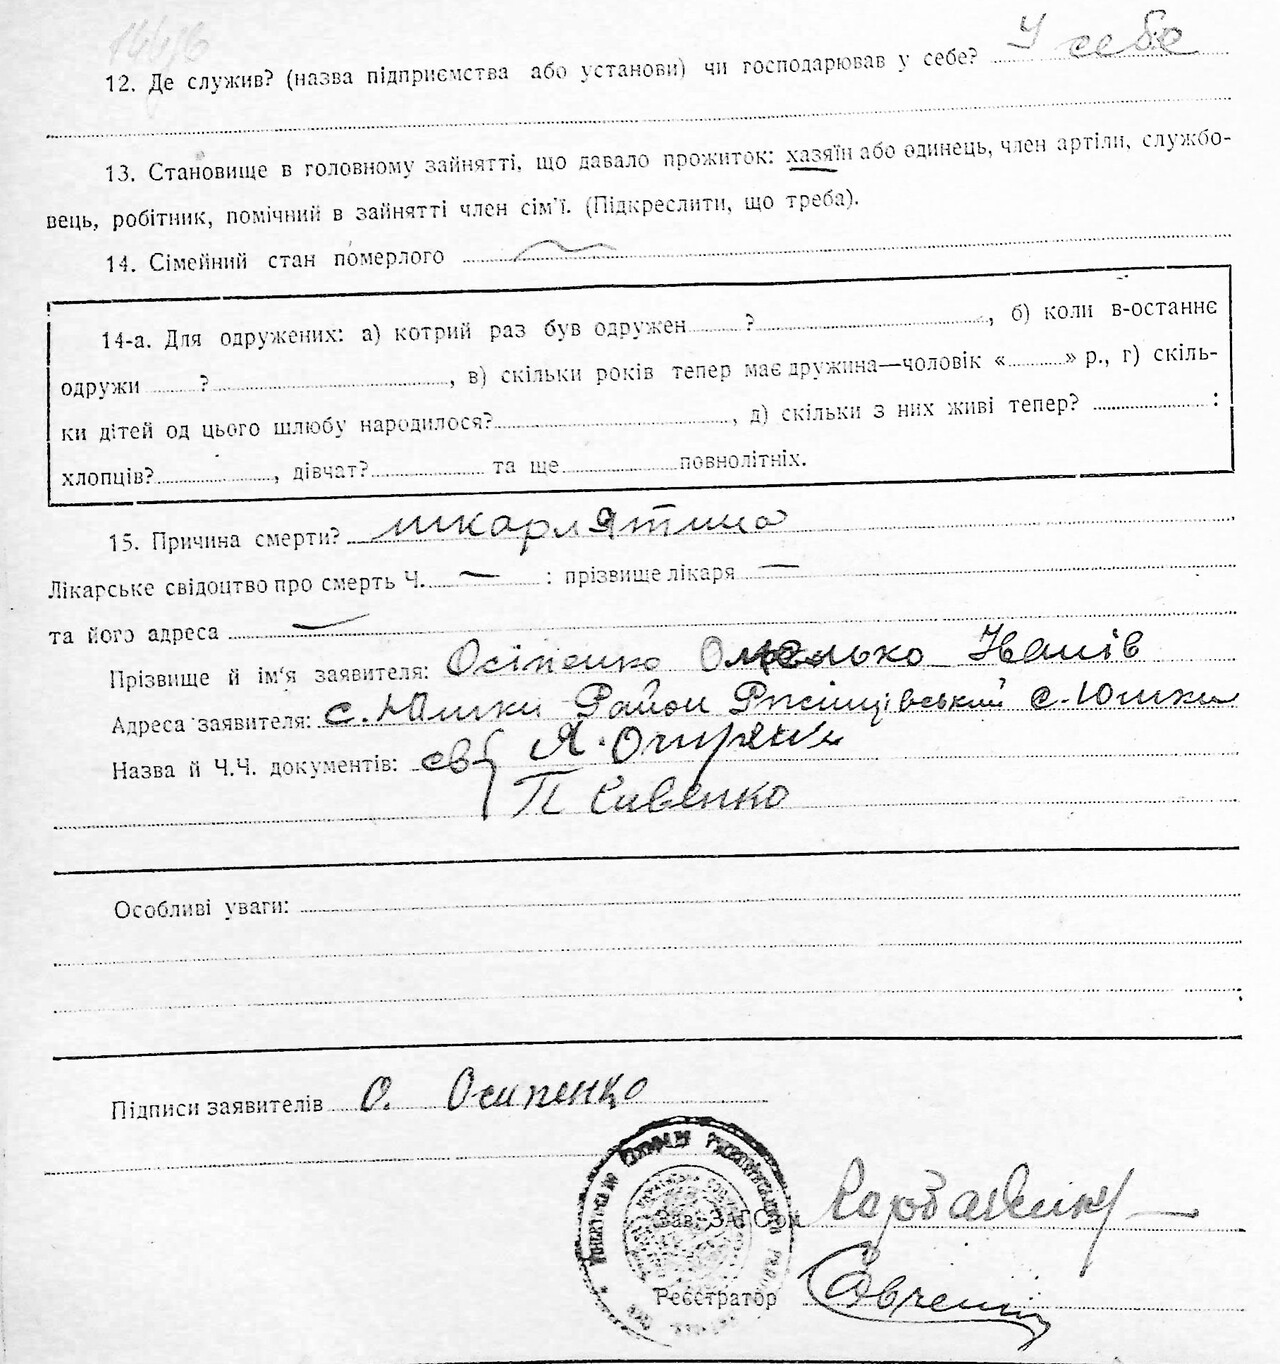 12. Де служив? (назва підприємства або установи) чи господарював у себе? У себе
13. Становище в головному зайнятті, що давало прожиток: хазяїн або одинець, член артіли, службо-
вець, робітник, помічний в зайнятті член сім'ї. (Підкреслити, що треба).
14. Сімейний стан померлого
14-а. Для одружених: а) котрий раз був одружен ?, б) коли в-останнє
одружи ?, в) скільки років тепер має дружина—чоловік « » р., г) скіль-
ки дітей од цього шлюбу народилося?, д) скільки з них живі тепер? :
хлопців?, дівчат? та ще повнолітніх.
15. Причина смерти? шкарлятина
Лікарське свідоцтво про смерть Ч. — : прізвище лікаря —
та його адреса —
Прізвище й ім'я заявителя: Осіпенко Омелько Іванів
Адреса заявителя: с. Юшки Район Ржищівський с. Юшки
Назва й Ч.Ч. документів: св
П Сивенко
Особливі уваги:
Підписи заявителів О. Осипенко
Зав. ЗАГСом
Реєстратор